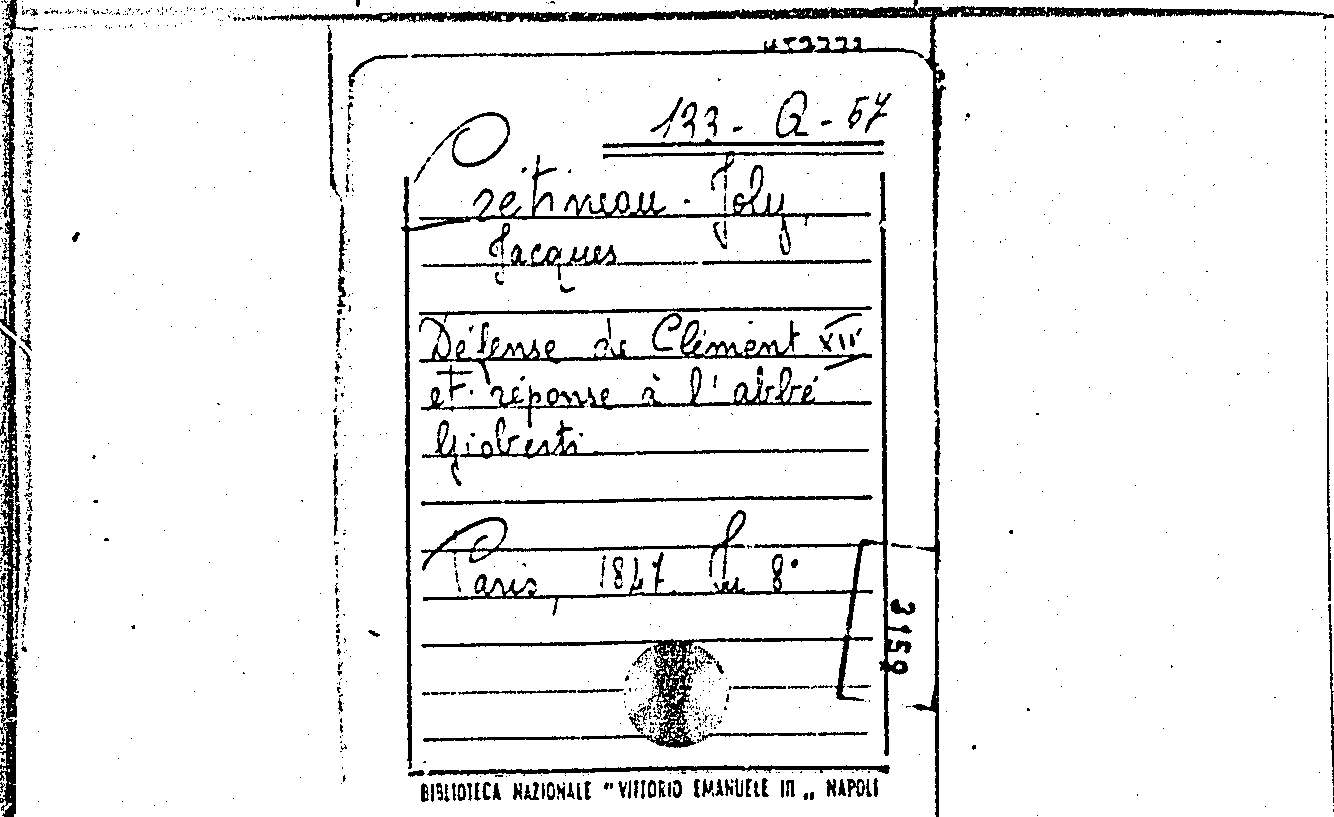 133 - Q - 57
Crétineau - Joly,
Jacques
Défense de Clément XII
et réponse à l'abbé
Gioberti
Paris, 1847. In 8°
3159
BIBLIOTECA NAZIONALE "VITTORIO EMANUELE III „ NAPOLI